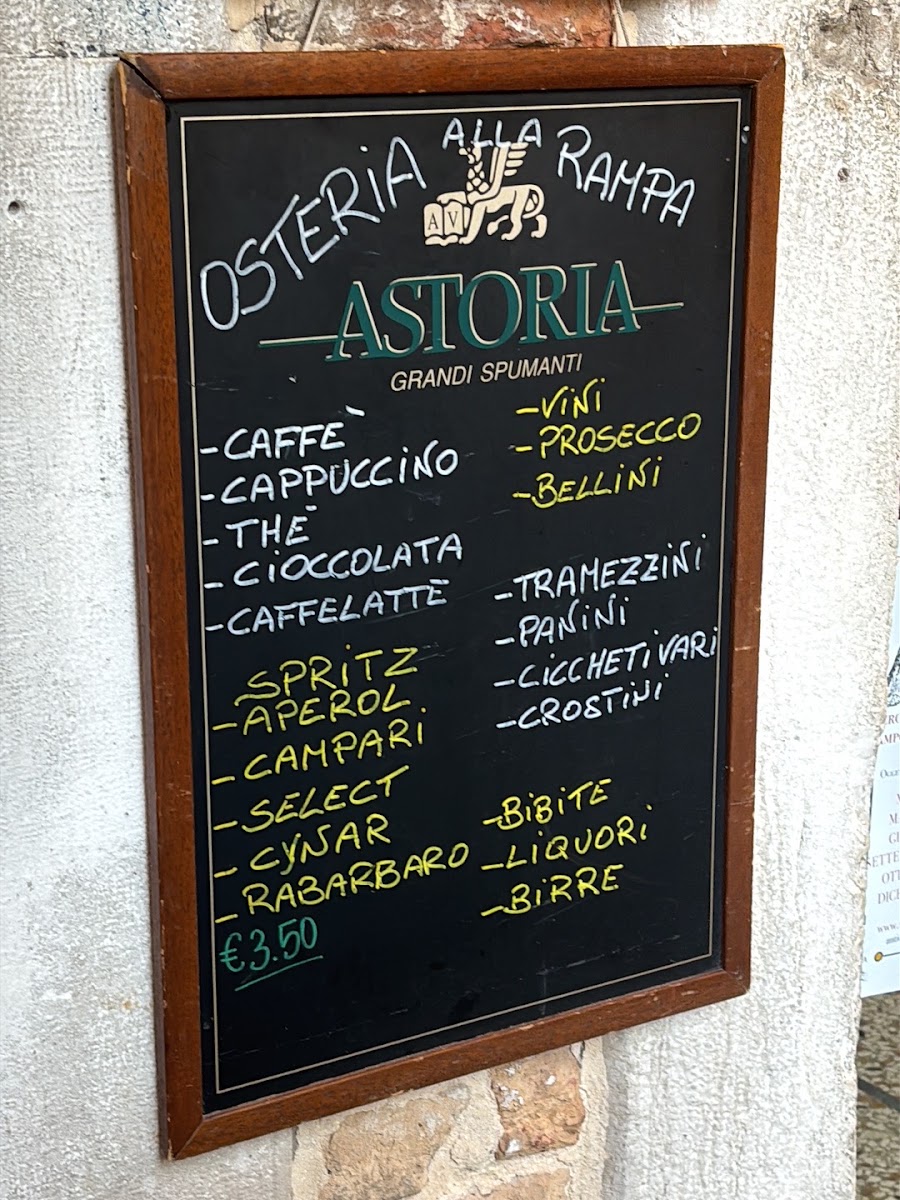 OSTERIA ALLA RAMPA
A V
ASTORIA
GRANDI SPUMANTI
-CAFFÈ
-CAPPUCCINO
-THÈ
-CIOCCOLATA
-CAFFELATTE
SPRITZ
-APEROL
-CAMPARI
-SELECT
-CYNAR
-RABARBARO
€3.50
-VINI
-PROSECCO
-BELLINI
-TRAMEZZINI
-PANINI
-CICCHETI VARI
-CROSTINI
-BIBITE
-LIQUORI
-BIRRE